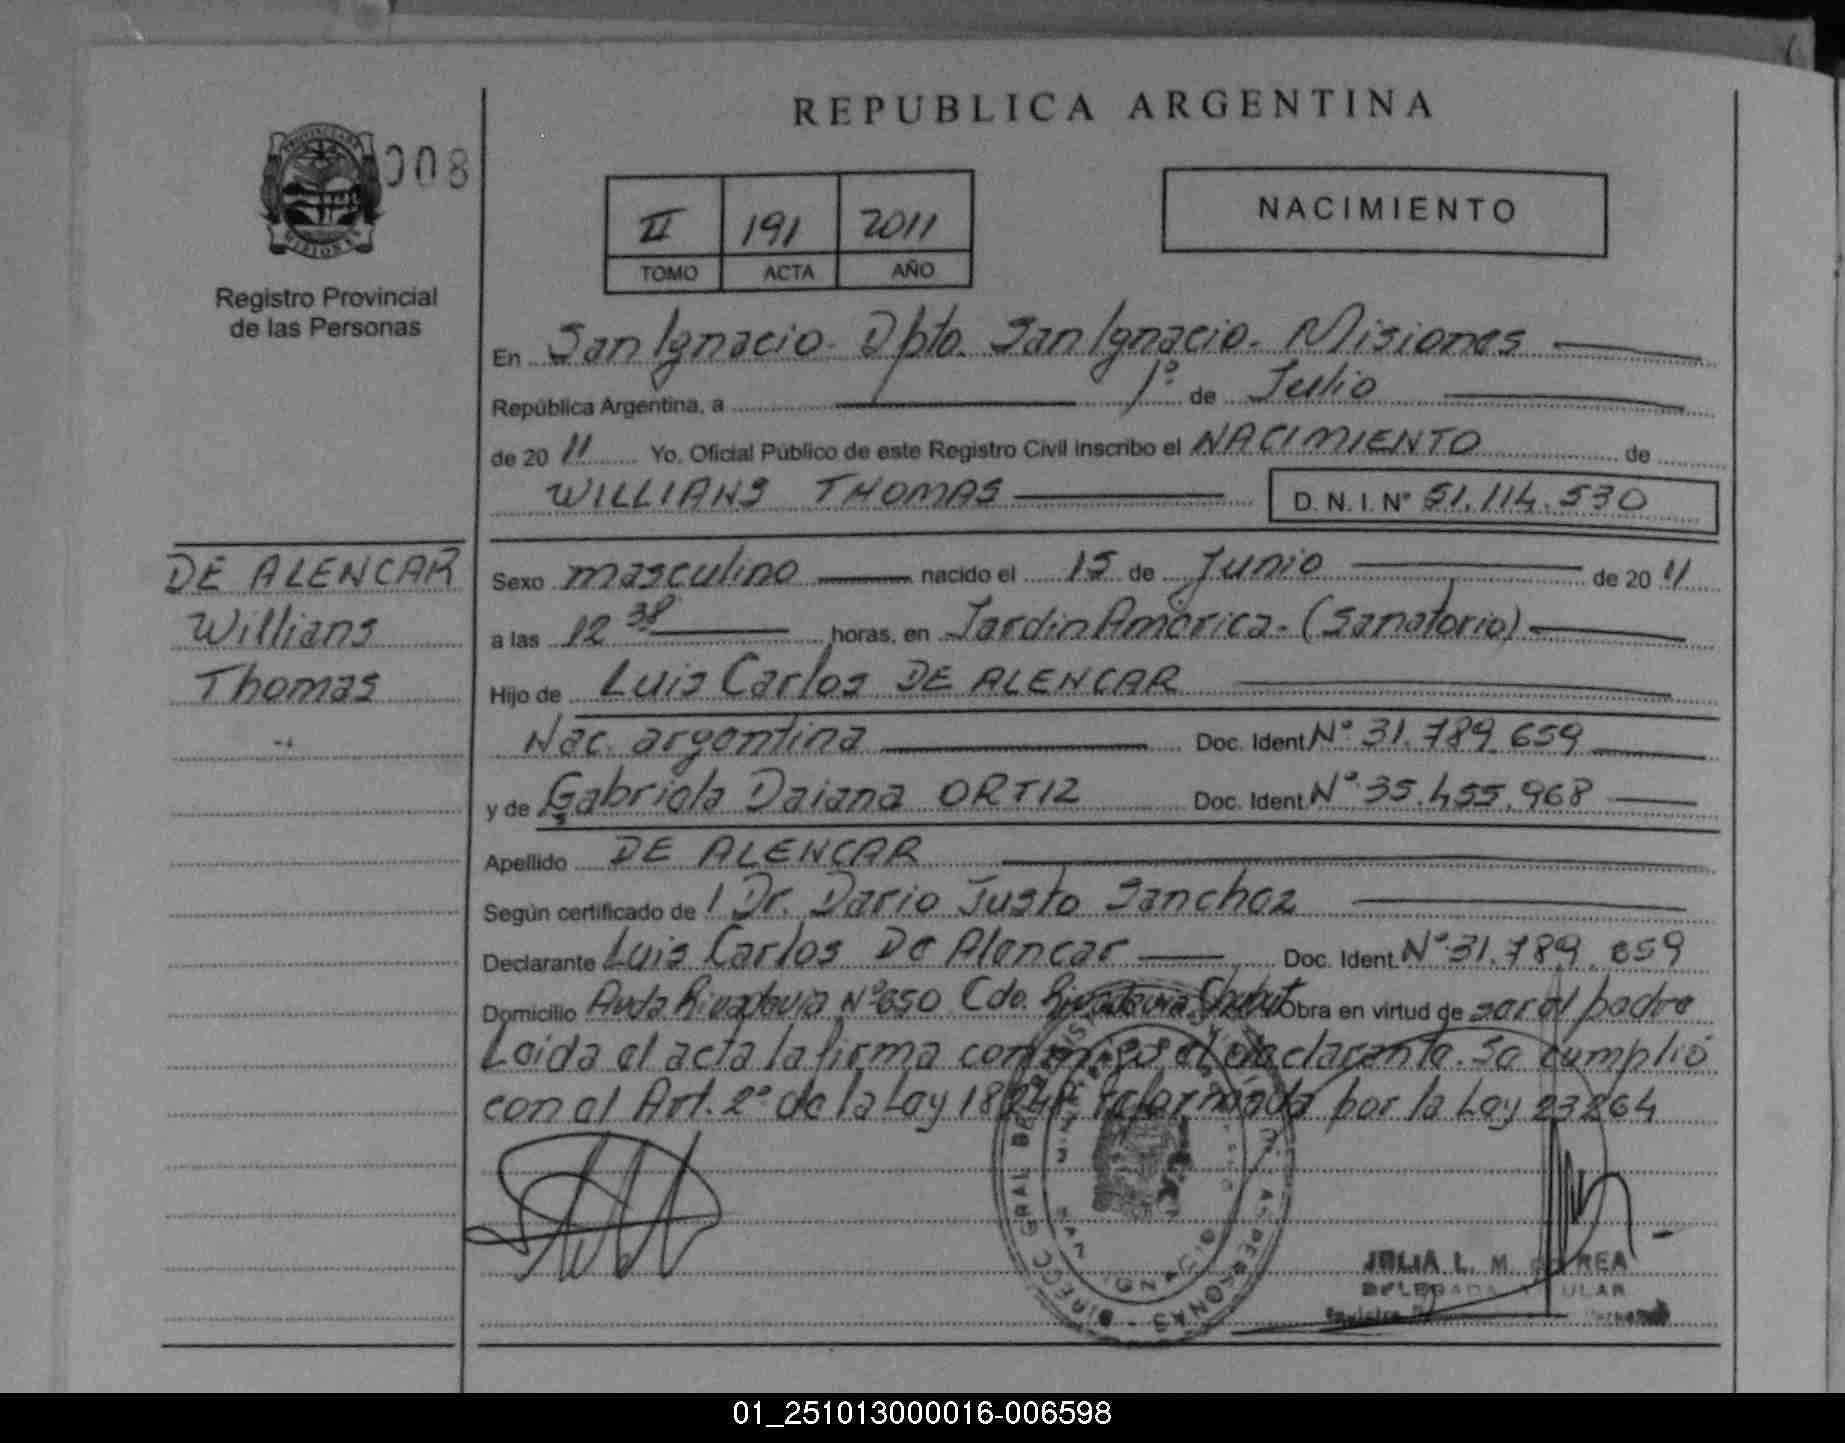 REPUBLICA ARGENTINA
008
II 191 2011
TOMO ACTA AÑO
NACIMIENTO
Registro Provincial
de las Personas
En San Ignacio - Dpto. San Ignacio - Misiones
República Argentina, a 1º de Julio
de 20 11 Yo, Oficial Público de este Registro Civil inscribo el NACIMIENTO de
WILLIANS THOMAS D. N. I. Nº 51.114.530
DE ALENCAR
Willians
Thomas
Sexo masculino nacido el 15 de Junio de 20 11
a las 12 38 horas, en Jardin América - (Sanatorio)
Hijo de Luis Carlos DE ALENCAR
Nac. argentina Doc. Ident. Nº 31.789.659
y de Gabriela Daiana ORTIZ Doc. Ident. Nº 35.455.968
Apellido DE ALENCAR
Según certificado de / Dr. Dario Justo Sanchez
Declarante Luis Carlos De Alencar Doc. Ident. Nº 31.789.659
Domicilio Avda Rivadavia Nº 650 Cdo. Rivadavia Chubut Obra en virtud de ser el padre
Leida el acta la firma conmigo el declarante. Se cumplió
con el Art. 2º de la Ley 18248 reformada por la Ley 23264
JULIA L. M.
01_251013000016-006598